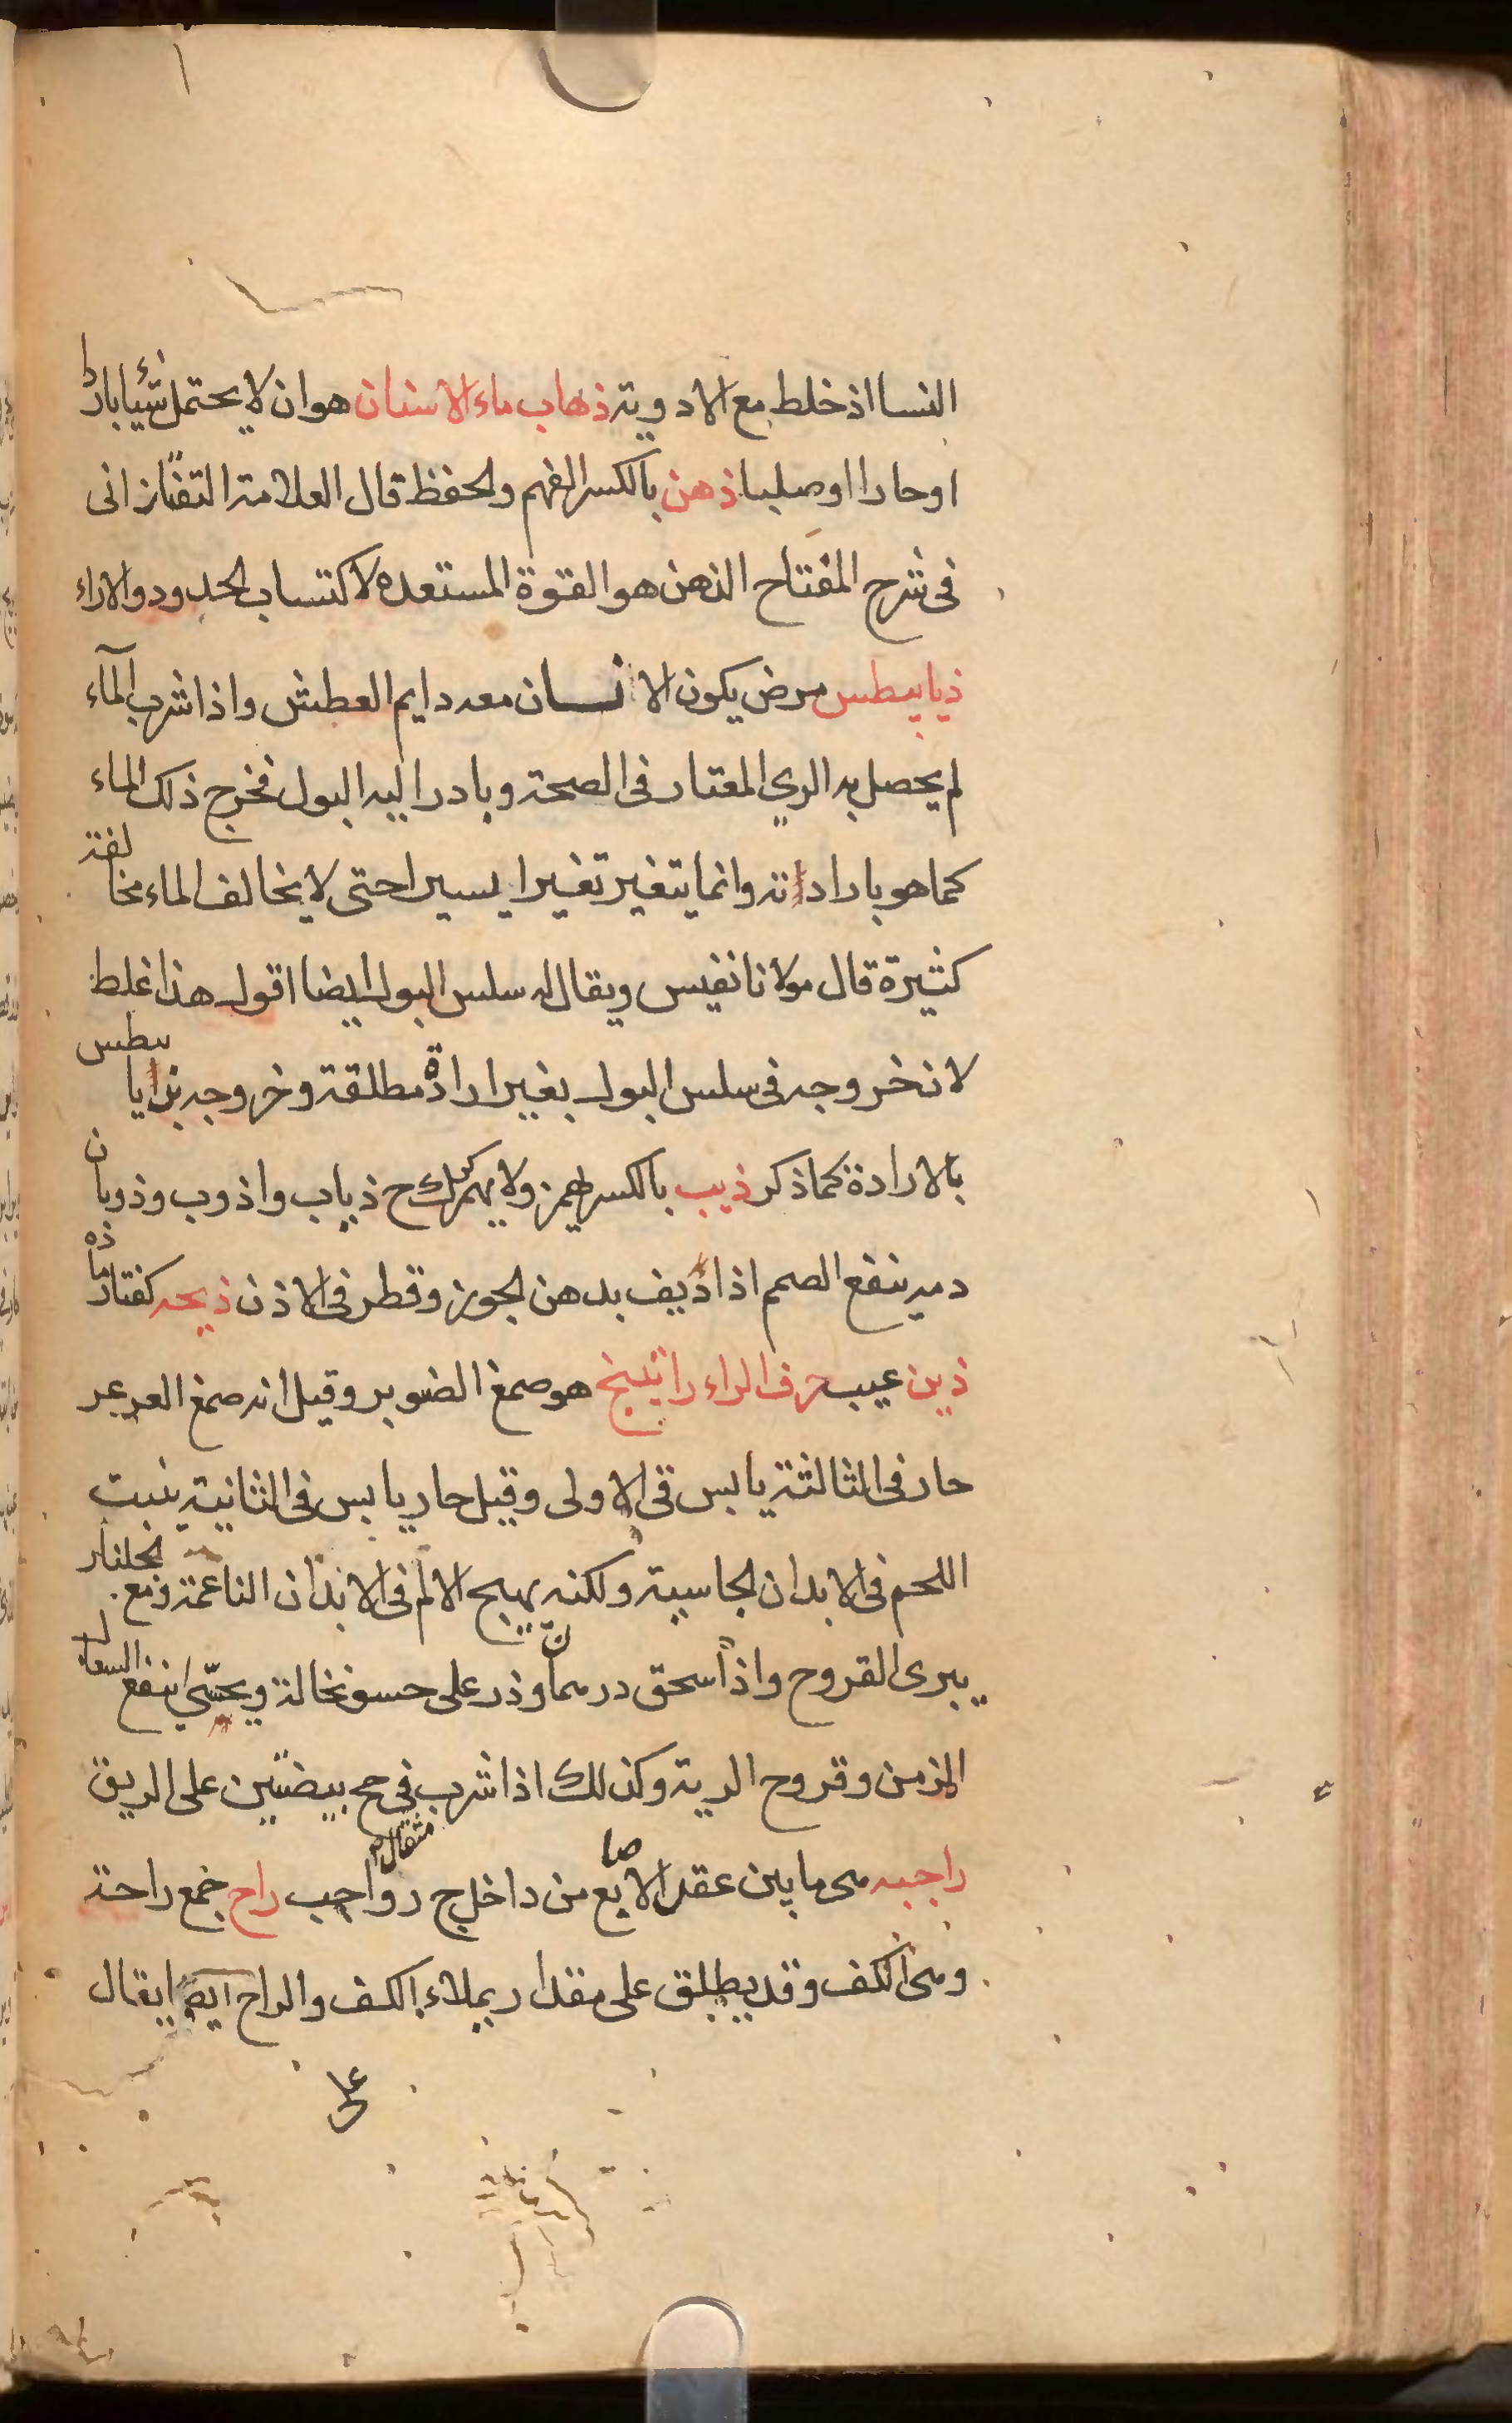 النسا اذ خلط مع الادوية ذهاب ماء الاسنان هو ان لا يحتمل شيئا باردا
او حارا او صلبا ذهن بالكسر الفهم والحفظ قال العلامة التفتازانى
فى شرح المفتاح الذهن هو القوة المستعده لاكتساب الحدود والاراء
ذيابيطس مرض يكون الانسان معه دايم العطش واذا شرب المآء
لم يحصل به الري المعتاد فى الصحة وبادر اليه البول فخرج ذلك الماء
كما هو بارادته وانما يتغير تغيرا يسيرا حتى لا يخالف الماء مخالفة
كثيرة قال مولانا نفيس ويقال له سلس البول ايضا اقول هذا غلط
لانه خروجه فى سلس البول بغير ارادة مطلقة وخروجه بذيابيطس
بالارادة كما ذكر ذيب بالكسر يهمز ولا يهمز كرك ح ذياب واذوب وذوبان
دمه ينفع الصمم اذا ذيف بدهن الجوز وقطر فى الاذن ذيحه كفتار ماده
ذين عيب حرف الراء راتينج هو صمغ الصنوبر وقيل انه صمغ العرعر
حار فى الثالثة يابس فى الاولى وقيل حار يابس فى الثانية ينبت
اللحم فى الابدان الجاسية ولكنه يهيج الالم فى الابدان الناعمة ومع الجلنار
يبرى القروح واذا سحق درهما وذر على حسو نخالة ويحسّى نفع السعال
المزمن وقروح الرية وكذلك اذا شرب فى مح بيضتين على الريق مثقال
راجبه هى ما بين عقد الاصابع من داخل ج رواجب راح جمع راحة
وهى الكف وقد يطلق على مقدار يملاء الكف والراح ايضا يقال
على